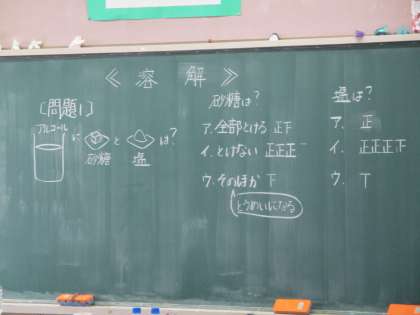 ≪ 溶 解 ≫
[問題1]
アルコール に 砂糖 と 塩 は?
砂糖は?
ア. 全部とける 正下
イ. とけない 正正正一
ウ. そのほか 下
とうめいになる
塩は?
ア. 正
イ. 正正正正下
ウ. 丅